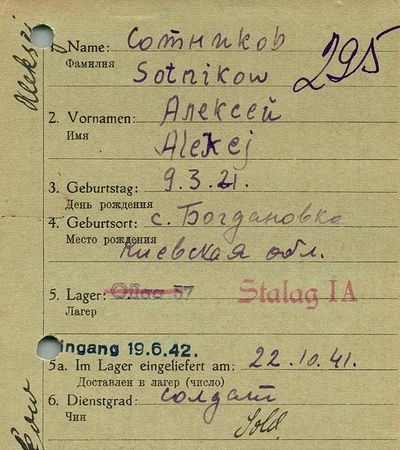 1. Name: Сотников
Фамилия
Sotnikow
295
2. Vornamen: Алексей
Имя
Alekej
3. Geburtstag: 9.3.21.
День рождения
4. Geburtsort: с. Богдановка
Место рождения
Киевская обл.
5. Lager: Oflag 57 Stalag IA
Лагер
Eingang 19.6.42.
5a. Im Lager eingeliefert am: 22.10.41.
Доставлен в лагер (число)
6. Dienstgrad: солдат
Чин
Sold.